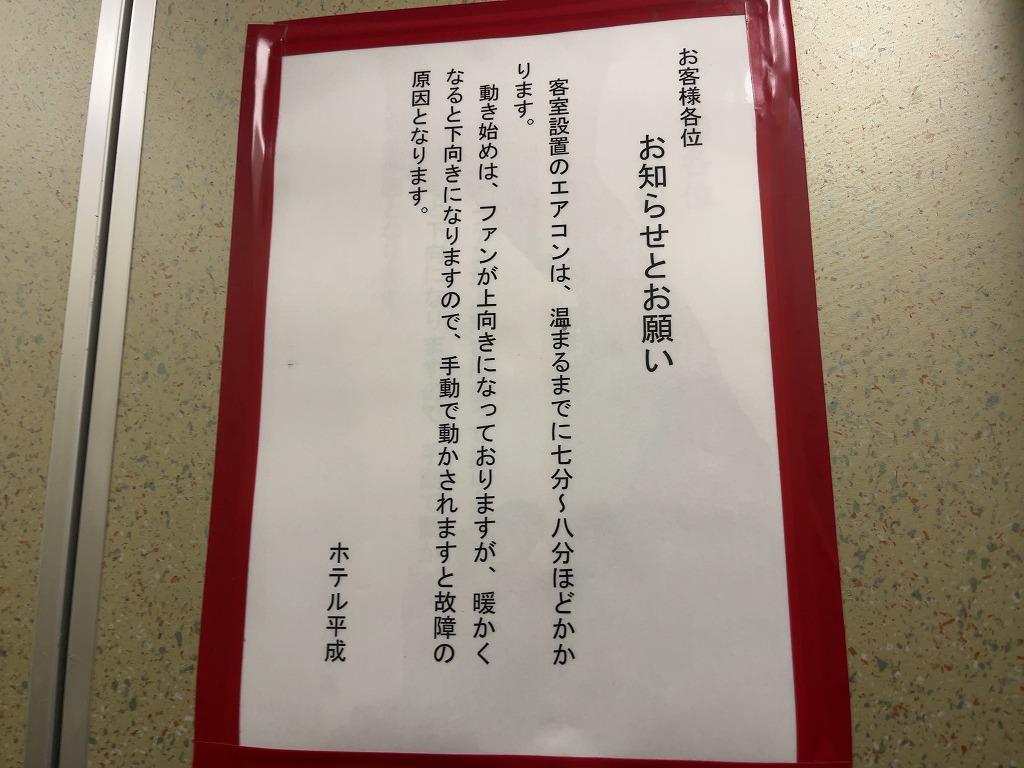 お客様各位
お知らせとお願い
客室設置のエアコンは、温まるまでに七分〜八分ほどかか
ります。
動き始めは、ファンが上向きになっておりますが、暖かく
なると下向きになりますので、手動で動かされますと故障の
原因となります。
ホテル平成